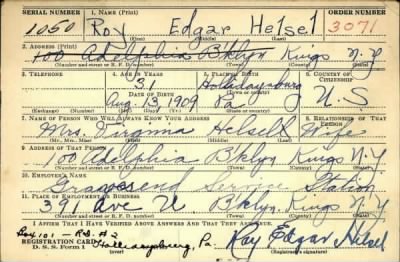 SERIAL NUMBER 1. NAME (Print) ORDER NUMBER
1050 Roy Edgar Helsel 3071
(First) (Middle) (Last)
2. ADDRESS (Print)
100 Adelphia Bklyn Kings N.Y.
(Number and street or R. F. D. number) (Town) (County) (State)
3. TELEPHONE 4. AGE IN YEARS 5. PLACE OF BIRTH 6. COUNTRY OF CITIZENSHIP
31 Hollidaysburg
DATE OF BIRTH (Town or county)
Aug. 13, 1909 Pa. U.S.
(Exchange) (Number) (Mo.) (Day) (Yr.) (State or country)
7. NAME OF PERSON WHO WILL ALWAYS KNOW YOUR ADDRESS 8. RELATIONSHIP OF THAT PERSON
Mrs. Virginia Helsel Wife
(Mr., Mrs., Miss) (First) (Middle) (Last)
9. ADDRESS OF THAT PERSON
100 Adelphia Bklyn Kings N.Y.
(Number and street or R. F. D. number) (Town) (County) (State)
10. EMPLOYER'S NAME
Gravesend Service Station
11. PLACE OF EMPLOYMENT OR BUSINESS
391 Ave U Bklyn. Kings N.Y.
(Number and street or R. F. D. number) (Town) (County) (State)
I AFFIRM THAT I HAVE VERIFIED ABOVE ANSWERS AND THAT THEY ARE TRUE.
Box 101 - R.D. #2
REGISTRATION CARD Hollidaysburg, Pa. Roy Edgar Helsel
D. S. S. Form 1 (over) (Registrant's signature)